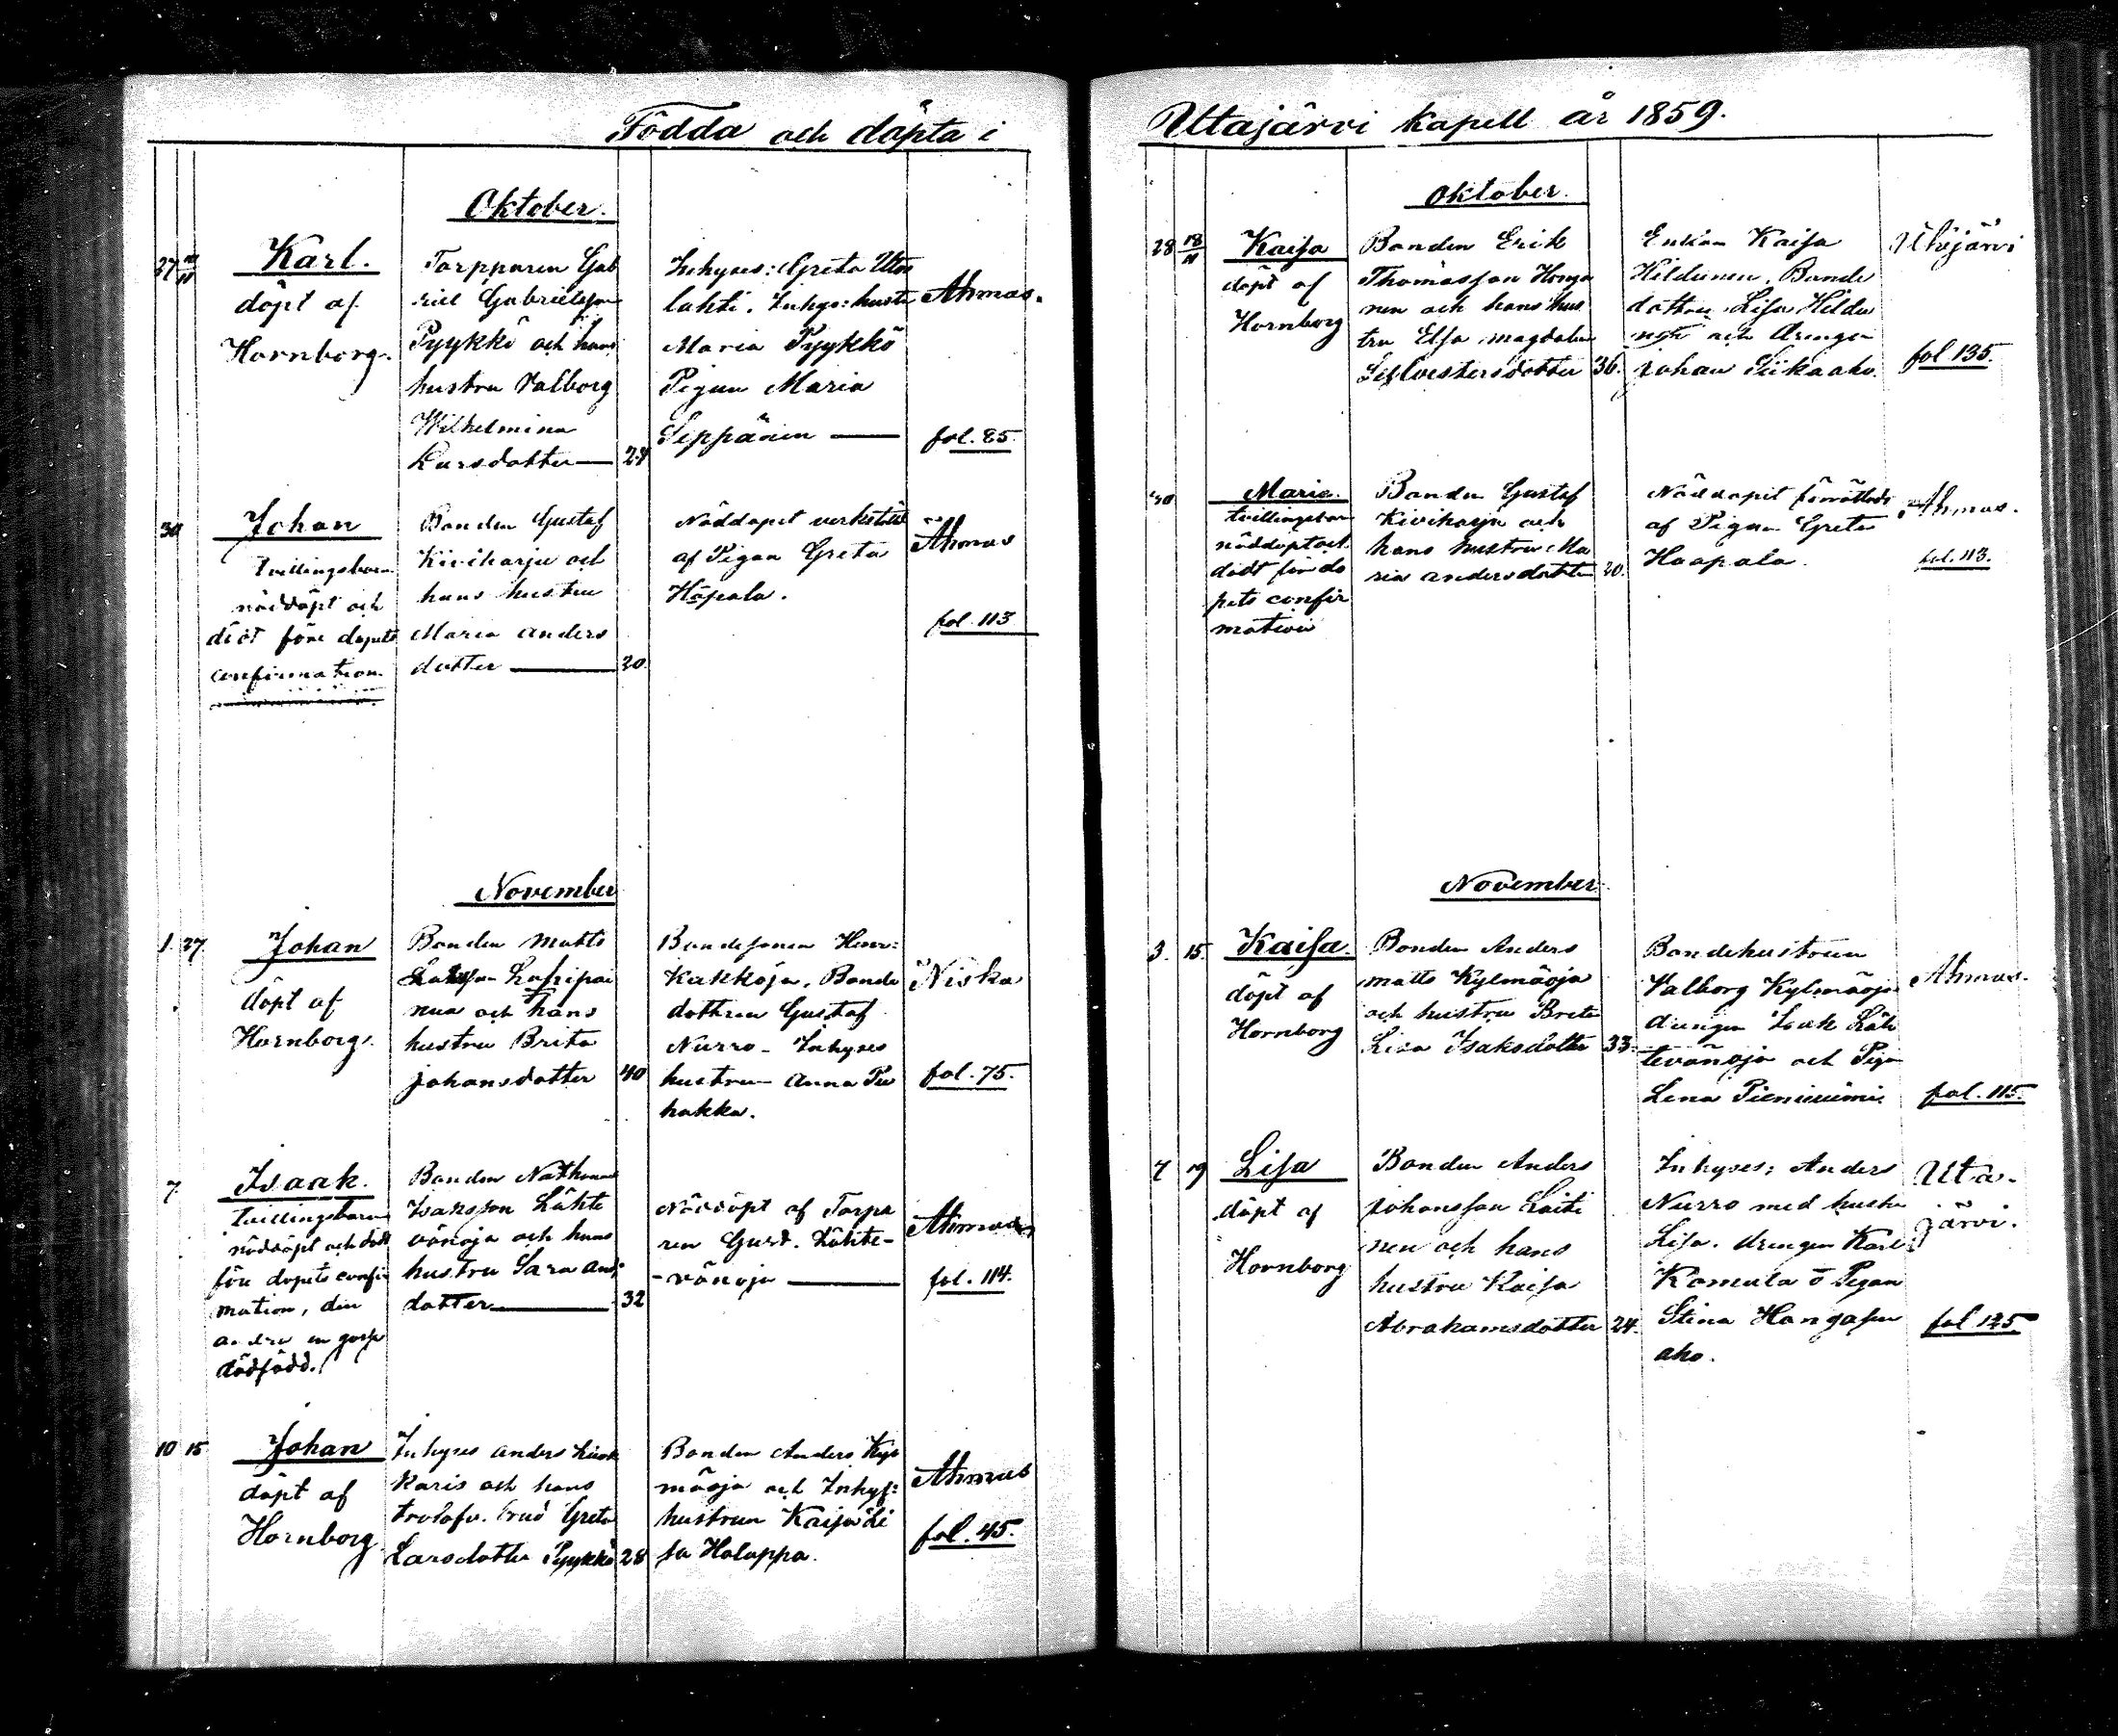 Födda och döpta i
Oktober.
27
Karl.
döpt af
Hornborg.
Torpparen Gab
riel Gabrielsson
Pyykkö och hans
hustru Valborg
Wilhelmina
Larsdotter
Inhyses: Greta Utos
lahti. Inhys: hustr
Maria Pyykkö
Pigan Maria
Seppänen
Ahmas.
fol. 85.
30
Johan
tvillingsbarn
nöddöpt och
död före dopets
confirmation
Bonden Gustaf
Kiviharju och
hans hustru
Maria Anders
dotter
20.
Nöddopet verkstäldt
af Pigan Greta
Hapala.
Ahmas
fol. 113
November
1. 27.
Johan
döpt af
Hornborg.
Bonden Matts
nen och hans
hustru Brita
Johansdotter
40
Bondesonen Henr:
Kakkoja. Bonde
dottren Gustaf
Nurro - Inhyses
hustrun Anna Pu
hakka.
Niska
fol. 75.
7.
Isaak.
tvillingsbarn
nöddöpt och död
före dopets confir
mation, den
andra en gosse
dödfödd.
Bonden Nathanael
Isaksson Lähte
vänoja och hans
hustru Sara And:
dotter
32
Nöddöpt af Torpa
ren Gust. Lähte-
-vänoja
Ahmas
fol. 114.
10 15
Johan
döpt af
Hornborg.
Inhyses Anders
karis och hans
Greta
Larsdotter Pyykkö
28
Bonden Anders Kyl
mäoja och Inhys:
hustrun Kaisa Li
sa Holappa.
Ahmas
fol. 45.
Utajärvi kapell år 1859.
Oktober.
28 18/11
Kaisa
döpt af
Hornborg
Bonden Erik
Thomasson Honga
nen och hans hus
tru Elsa Magdalena
Silvestersdotter
36.
Enkan Kaisa
Hildunen. Bonde
dottren Lisa Hildu
nen och Drengen
Johan Siikaaho.
fol 135.
30
Maria.
tvillingsbarn
nöddöpt och
död före do
pets confir
mation
Bonden Gustaf
Kiviharju och
hans hustru Ma
ria Andersdotter
20.
Nöddopet förrättadt
af Pigan Greta
Haapala.
Ahmas.
fol. 113.
November.
3. 15.
Kaisa.
döpt af
Hornborg
Bonden Anders
Matts Kylmäoja
och hustru Brita
Lisa Isaksdotter
33.
Bondehustrun
Valborg Kylmäoja
drengen Isak Läh
tevänoja och Pigan
Lena Pieniniemi.
Ahmas.
fol. 115.
7 19
Lisa
döpt af
Hornborg
Bonden Anders
Johansson Laiti
nen och hans
hustru Kaisa
Abrahamsdotter
24.
Inhyses: Anders
Nurro med hustru
Lisa. drengen Karl
Komula o Pigan
Stina Hangasen
aho.
Uta-
järvi.
fol 125.